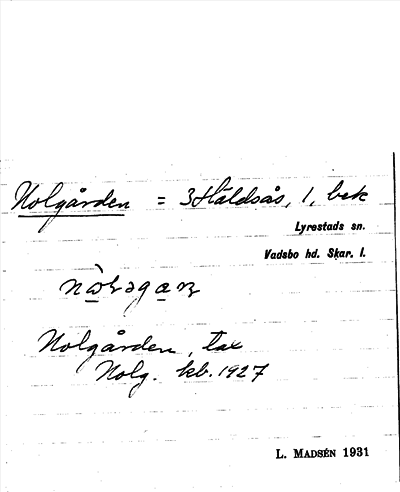 Nolgården = 3 Håldsås, 1, bek
Lyrestads sn.
Vadsbo hd. Skar. l.
Nolgården, tax
Nolg. kb. 1927
L. MADSÉN 1931